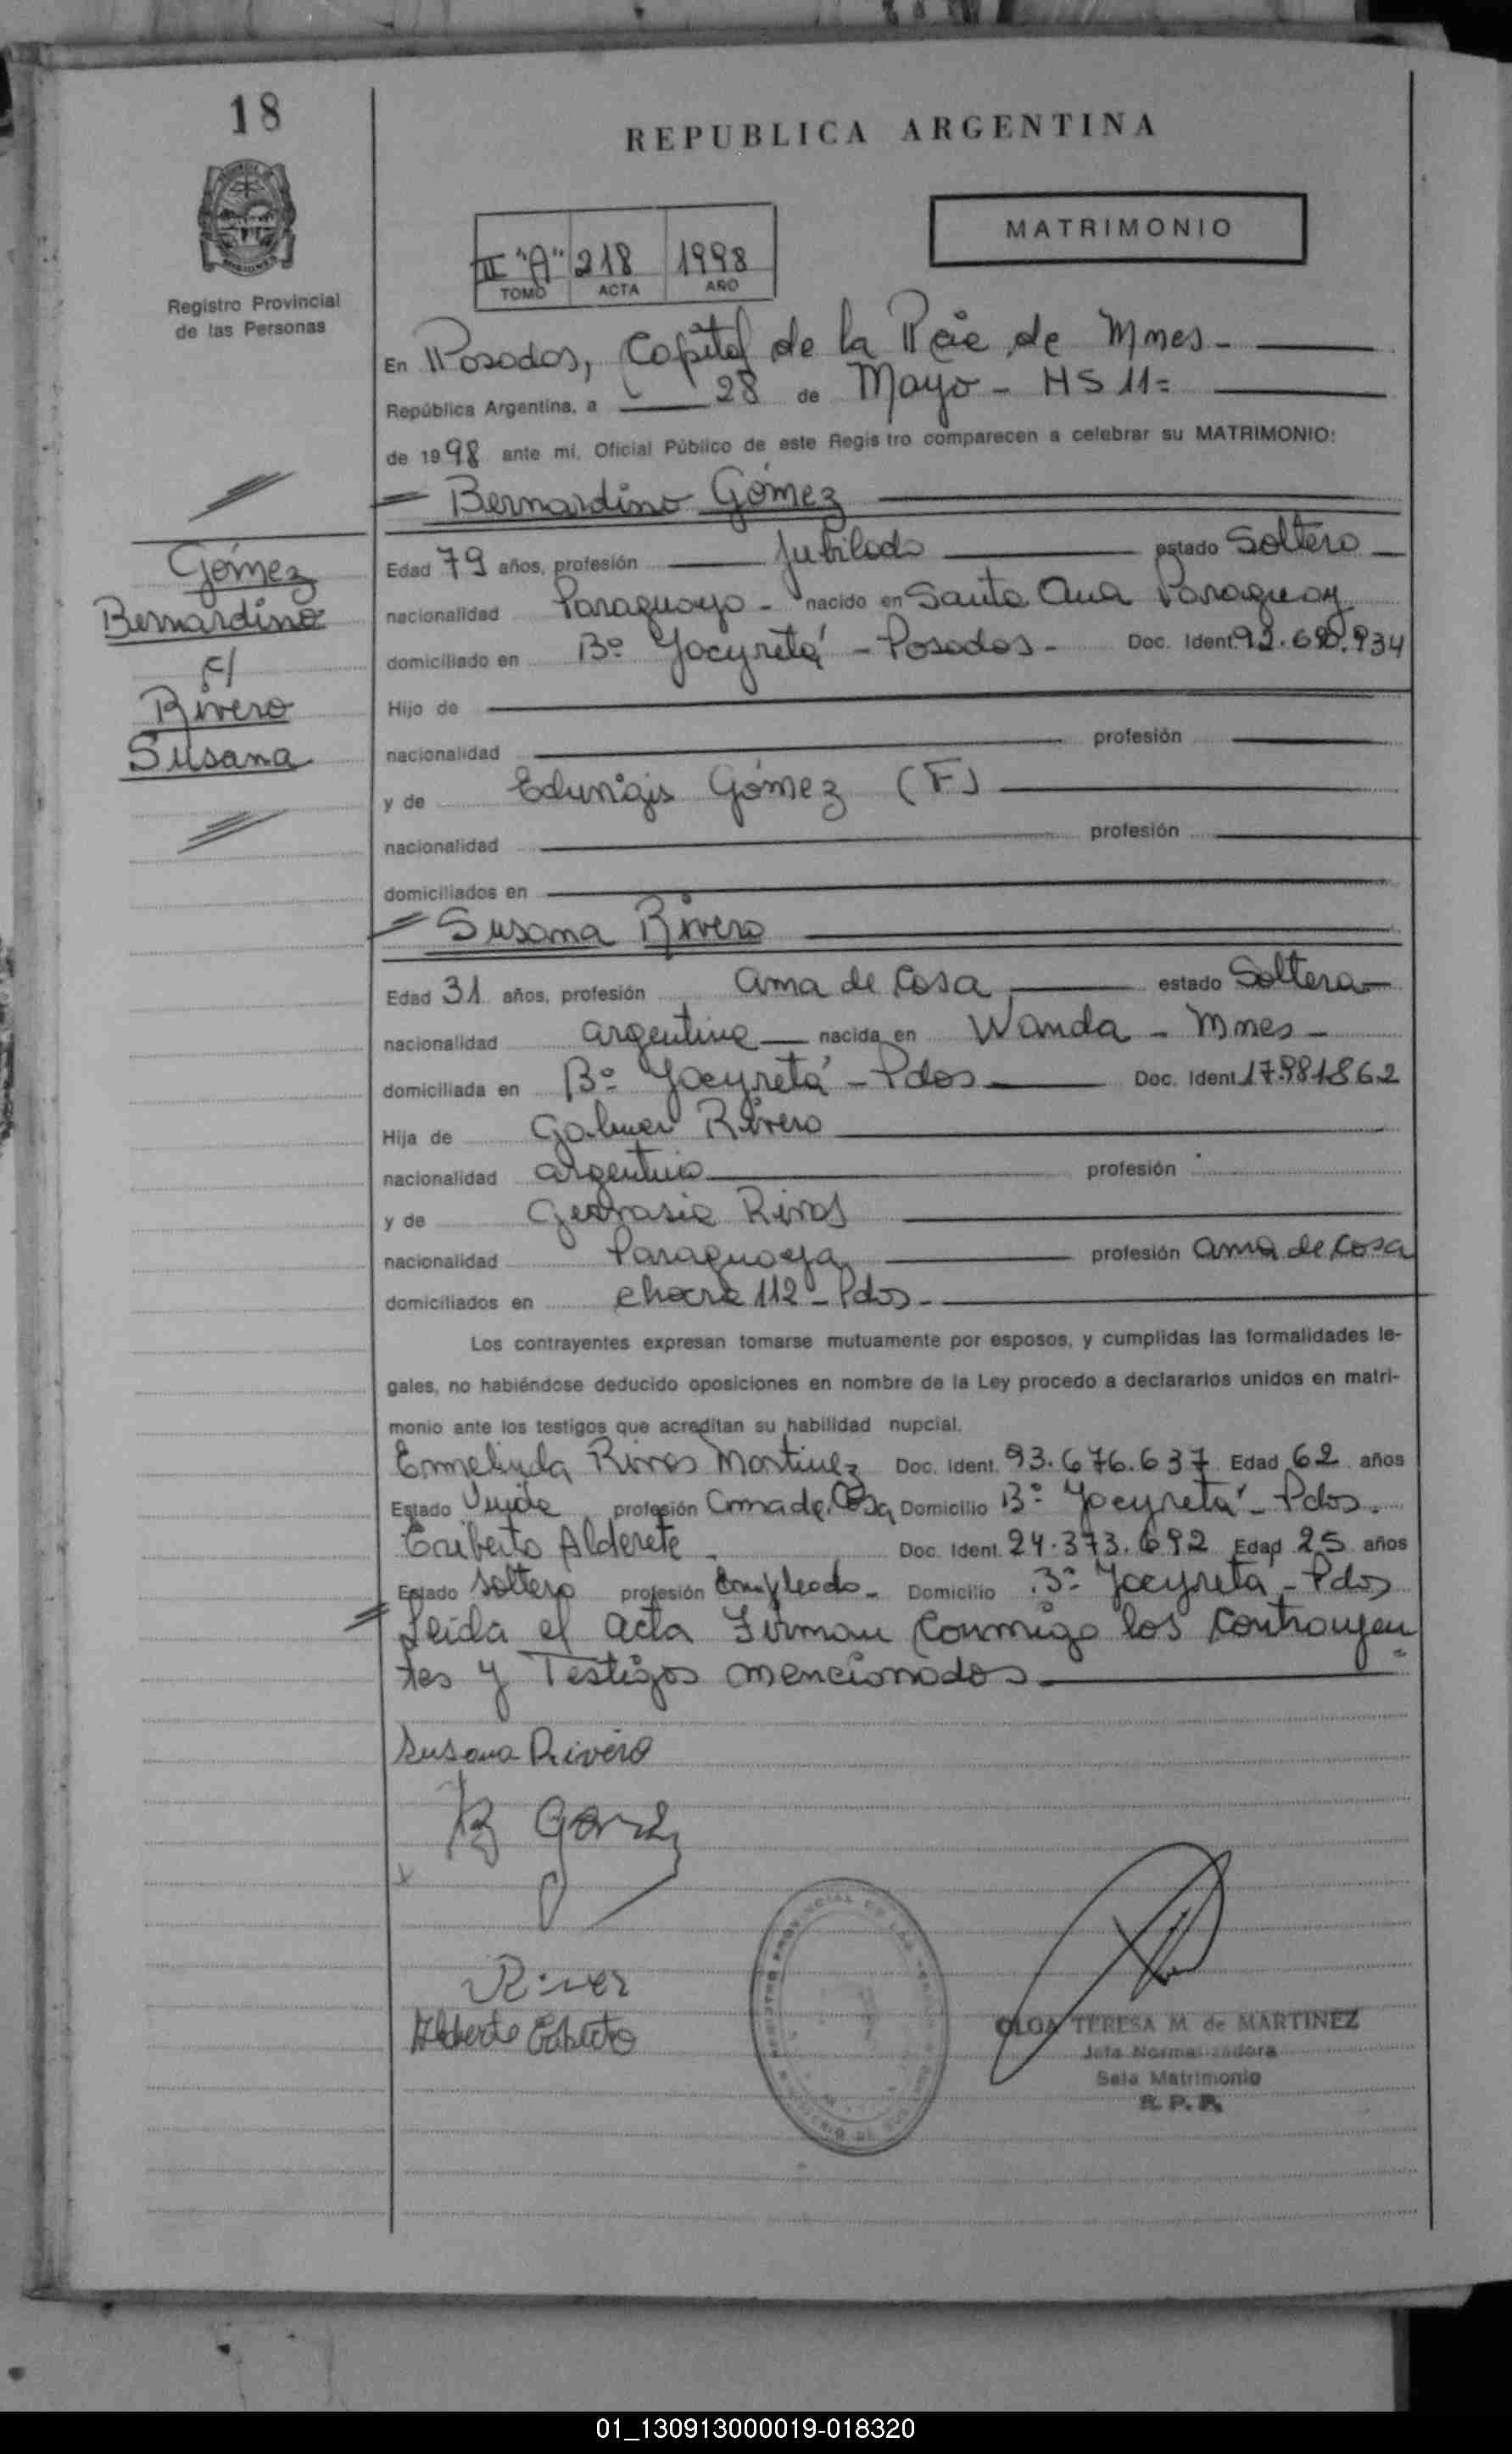 18
REPUBLICA ARGENTINA
MATRIMONIO
II "A" 218 1998
TOMO ACTA AÑO
Registro Provincial
de las Personas
En Posadas, Capital de la Pcia de Mnes -
República Argentina, a 28 de Mayo - HS 11=
de 1998 ante mí, Oficial Público de este Registro comparecen a celebrar su MATRIMONIO:
Bernardino Gómez
Gómez
Bernardino
c/
Rivero
Susana
Edad 79 años, profesión Jubilado estado Soltero
nacionalidad Paraguayo - nacido en Santa Ana Paraguay
domiciliado en Bº Yacyretá - Posadas - Doc. Ident. 92.690.934
Hijo de
nacionalidad profesión
y de Eduvigis Gómez (F)
nacionalidad profesión
domiciliados en
Susana Rivero
Edad 31 años, profesión ama de casa estado Soltera
nacionalidad argentina nacida en Wanda - Mnes -
domiciliada en Bº Yacyretá - Pdas Doc. Ident. 17.981.862
Hija de Rivero
nacionalidad argentino profesión
y de Gervasia Rivas
nacionalidad Paraguaya profesión ama de casa
domiciliados en chacra 112 - Pdas -
Los contrayentes expresan tomarse mutuamente por esposos, y cumplidas las formalidades le-
gales, no habiéndose deducido oposiciones en nombre de la Ley procedo a declararlos unidos en matri-
monio ante los testigos que acreditan su habilidad nupcial.
Ermelinda Rivas Martinez Doc. Ident. 93.676.637 Edad 62 años
Estado Viuda profesión ama de Casa Domicilio Bº Yacyretá - Pdas.
Eriberto Alderete Doc. Ident. 24.373.692 Edad 25 años
Estado soltero profesión Empleado - Domicilio Bº Yacyretá - Pdas
Leída el acta Firman Conmigo los Contrayen
tes y Testigos mencionados
Susana Rivero
B Gomez
OLGA TERESA M. de MARTINEZ
Jefa Normalizadora
Sala Matrimonio
R. P. P.
01_130913000019-018320